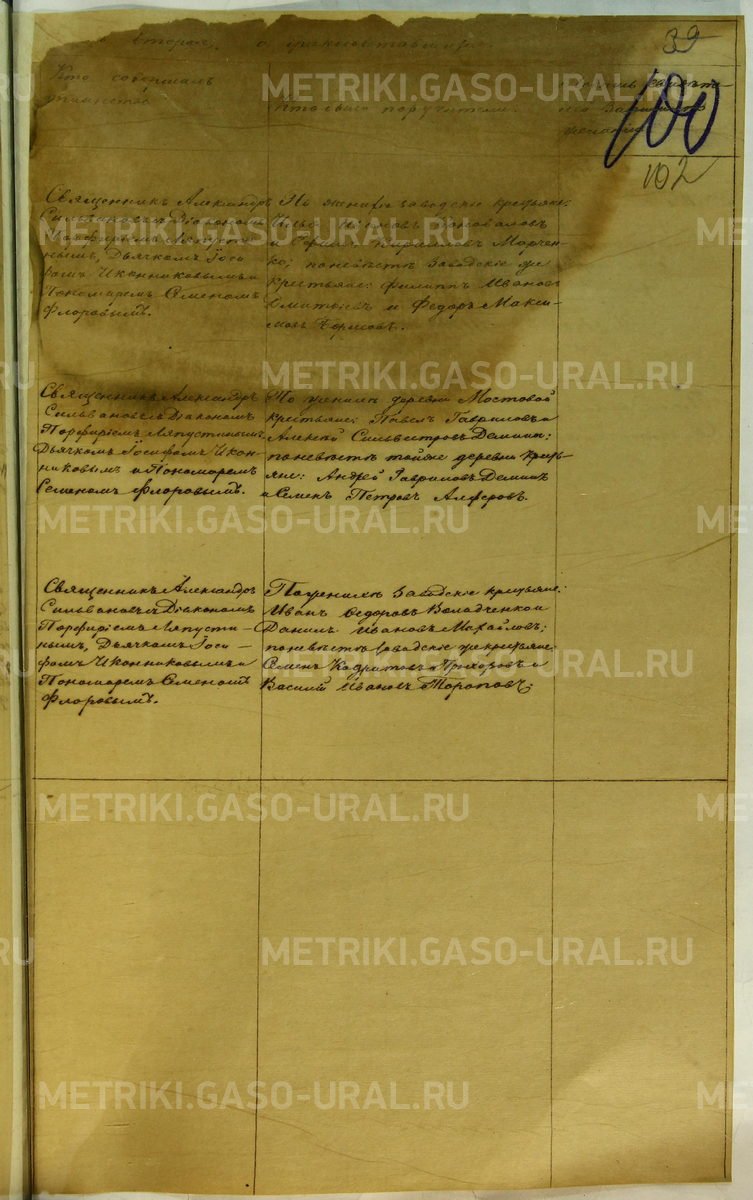 второй, о
39
Кто совершалъ
таинство
Кто былъ поручители.
100
102
Священникъ Александръ
Сильвановъ съ Діакономъ
Порфиріемъ Ляпусти-
нымъ, Дьячкомъ Іоси-
фомъ Иконниковымъ и
Пономаремъ Семеномъ
Флоровымъ.
По женихѣ заводскіе крестьяне:
Илья Коноваловъ
и Кириловъ Марчен-
ко; по невѣстѣ Заводскіе же
крестьяне: Филиппъ Ивановъ
и Федоръ Макси-
мовъ
Священникъ Александръ
Сильвановъ съ Діакономъ
Порфиріемъ Ляпустинымъ
Дьячкомъ Іосифомъ Икон-
никовымъ и Пономаремъ
Семеномъ Флоровымъ.
По женихѣ деревни Мостовой
крестьяне: Павелъ Гавриловъ и
Алексѣй Сильвестровъ Деминъ;
по невѣстѣ тойже деревни кресть-
яне: Андрей Гавриловъ Деминъ
и Семенъ Петровъ Алферовъ.
Священникъ Александръ
Сильвановъ съ Діакономъ
Порфиріемъ Ляпусти-
нымъ, Дьячкомъ Іоси-
фомъ Иконниковымъ и
Пономаремъ Семеномъ
Флоровымъ.
По женихѣ Заводскіе крестьяне:
Иванъ Федоровъ Володченко и
Данилъ Ивановъ Михайловъ;
по невѣстѣ Заводскіе же крестьяне:
Семенъ Кодратовъ Прохоровъ и
Василій Ивановъ Тороповъ;
METRIKI.GASO-URAL.RU